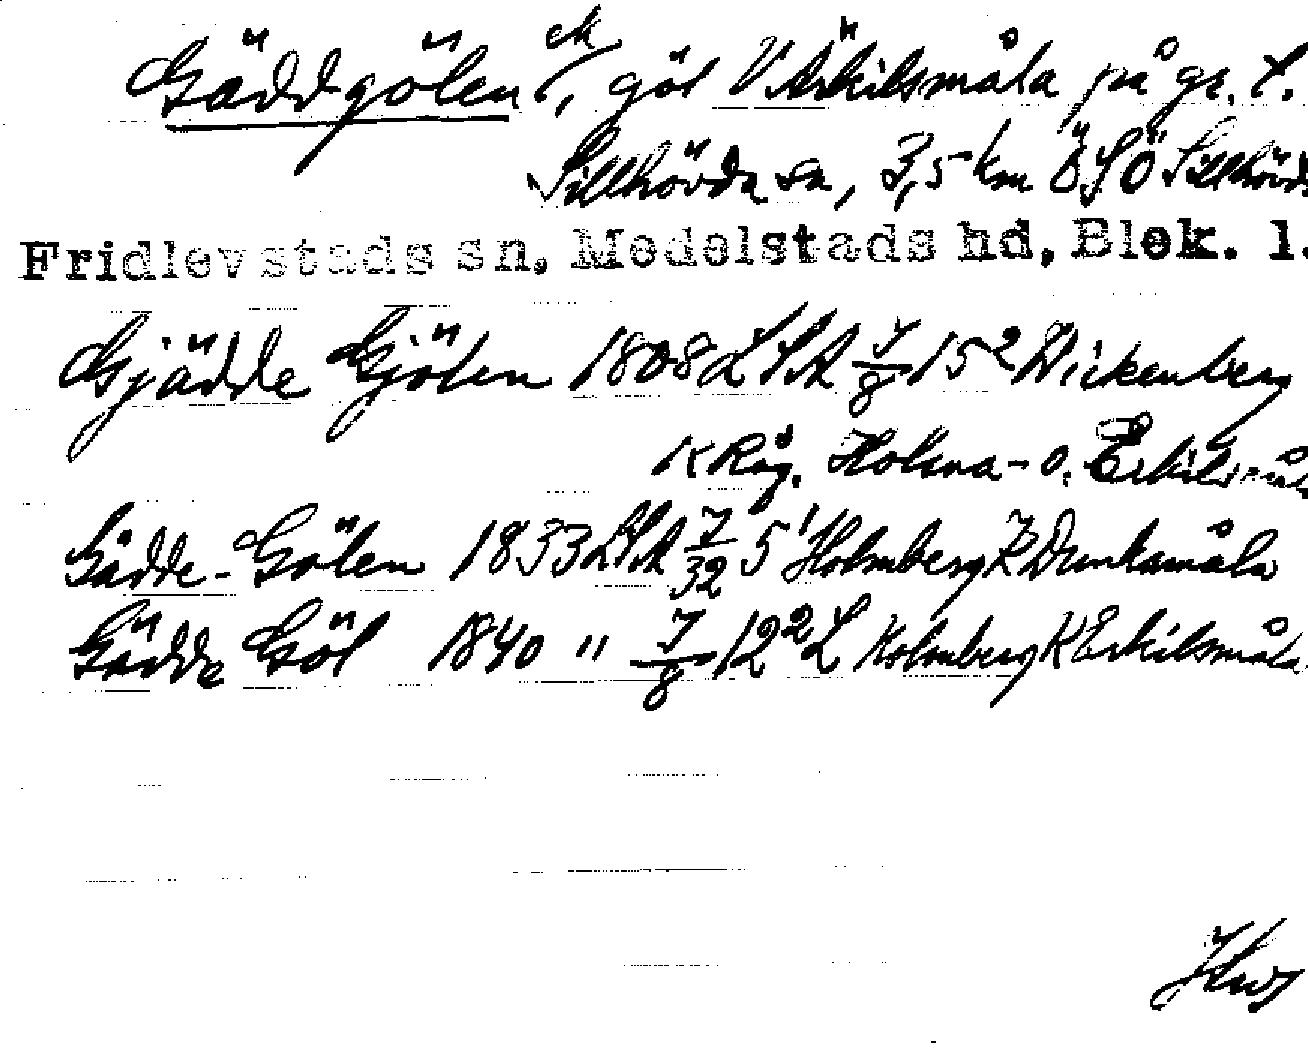 Gäddgölen ek, göl V Ärkilsmåla på gr. t.
Sillhövda sn, 3,5 km ÖSÖ Sillhövda
Fridlevstads sn, Medelstads hd, Blek. l.
Gjädde Gjölen 1808 LSA 7/8 15² Wickenberg
K Råg. Holma- o. Erkilsmåla
Gädde-Gölen 1833 LSA 7/32 5¹ Holmberg K Dunkamåla
Gädde Göl 1840 " 7/8 12² L Holmberg K Erkilsmåla